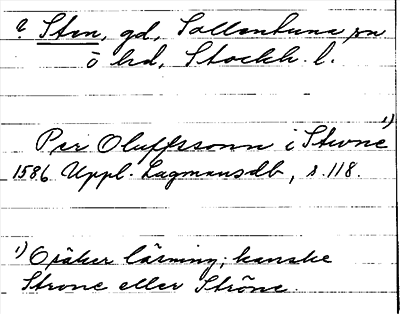 ? Sten, gd, Sollentuna sn
o hd, Stockh. l.
Per Oluffssonn i Stwne 1)
1586 Uppl. Lagmansdb, s. 118.
1) Osäker läsning; kanske
Strone eller Ströne.